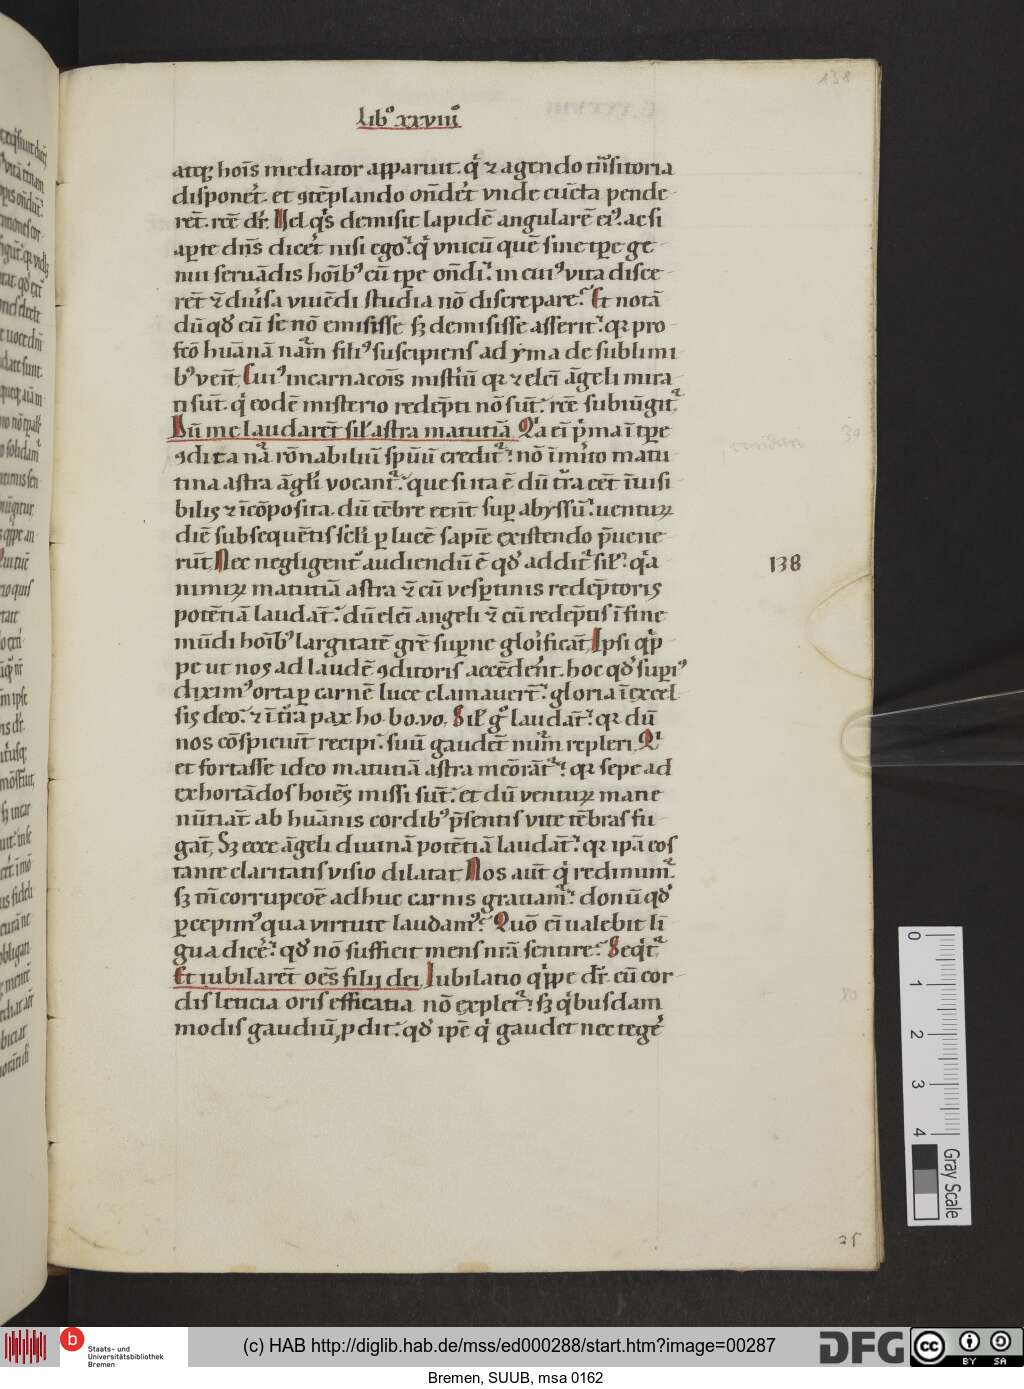 138
lib⁹ xxviii⁹
atq; hoīs mediator apparuit. q̇ ⁊ agendo tn̄sitoria
disponet᷑. et ꝯtēplando on̄det᷑ vnde cūcta pende-
rēt. rc̄e dr̄. Vel q̇s demisit lapidē angularē ei⁹. ac si
aꝑte dn̄s dicet᷑ nisi ego. q̇ vnicū quē sine tꝑe ge-
nui seruādis hoīb⁹ cū tꝑe on̄di. in cui⁹ vita disce-
rēt ⁊̄ diu᷑sa viuēdi studia nō discrepare. Et notā-
dū qd̓ eū se nō emisisse sꝫ demisisse asserit. qꝛ pro-
fc̄o huānā nām fili⁹ suscipiens ad yma de sublimi-
b⁹ veīt. Cui⁹ incarnacoīs mist᷑iū qꝛ ⁊ elc̄i āgeli mira-
ti sūt. q̇ eodē misterio redēpti nō sūt. rc̄e subiūgit᷑.
Cū me laudarēt sil̓ astra matutīa. Q̇a eī p̄ma ī tꝑe
ꝯdita nā rōnabiliū sp̄uū credit᷑. nō īm̄ito matu-
tina astra āgl̓i vocant᷑. que si ita ē dū t᷑ra eēt īuisi-
bilis ⁊ īcōposita. dū tēbre eēnt suꝑ abyssū. uentuꝝ
diē subsequētis sc̄li ꝑ lucē sapīe existendo p̄uene-
rūt. Nec negligent᷑ audiendū ē qd̓ addit᷑ sil̓. q̇a
nimiꝝ matutīa astra ⁊̄ cū vesꝑtinis redēptoris
potētiā laudāt. dū elc̄i angeli ⁊̄ cū redēptis ī fine
mūdi hoīb⁹ largitatē grē suꝑne glōificāt. Ipsi q̇p-
pe ut nos ad laudē ꝯditoris accēdet᷑nt. hoc qd̓ supi⁹
dixim⁹ orta ꝑ carnē luce clamauert᷑. gloria ī excel-
sis deo. ⁊ ī t᷑ra pax ho. bo. vo. Sil̓ g° laudāt. qꝛ dū
nos cōspiciūt recipi. suū gaudēt num᷑m repleri. Q̇
et fortasse ideo matutīa astra meōrāt᷑. qꝛ sepe ad
exhortādos hoiēs missi sūt. et dū ventuꝝ mane
nūtiāt. ab huānis cordib⁹ p̄sentis vite tēbras fu-
gāt. Sꝫ ecce āgeli diuinā potētiā laudāt. qꝛ ipā eos
tante claritatis visio dilatat. Nos aūt q̇ redimim᷑.
sꝫ tn̄ corrupcoē adhuc carnis grauam᷑. donū qd̓
ꝑcepim⁹ qua virtute laudam⁹. Quō eī ualebit lī-
gua dicē᷑. qd̓ nō sufficit mens nrā sentire. Seq̇t᷑
Et iubilarēt oēs filij dei. Iubilatio q̇ppe dr̄. cū cor-
dis leticia oris efficatia nō explet᷑. sꝫ q̇busdam
modis gaudiū ꝓdit. qd̓ ipē q̇ gaudet nec tege᷑
138
39
80
25
0
1
2
3
4
Gray Scale
b
Staats- und
Universitätsbibliothek
Bremen
(c) HAB http://diglib.hab.de/mss/ed000288/start.htm?image=00287
DFG
cc
BY SA
Bremen, SUUB, msa 0162